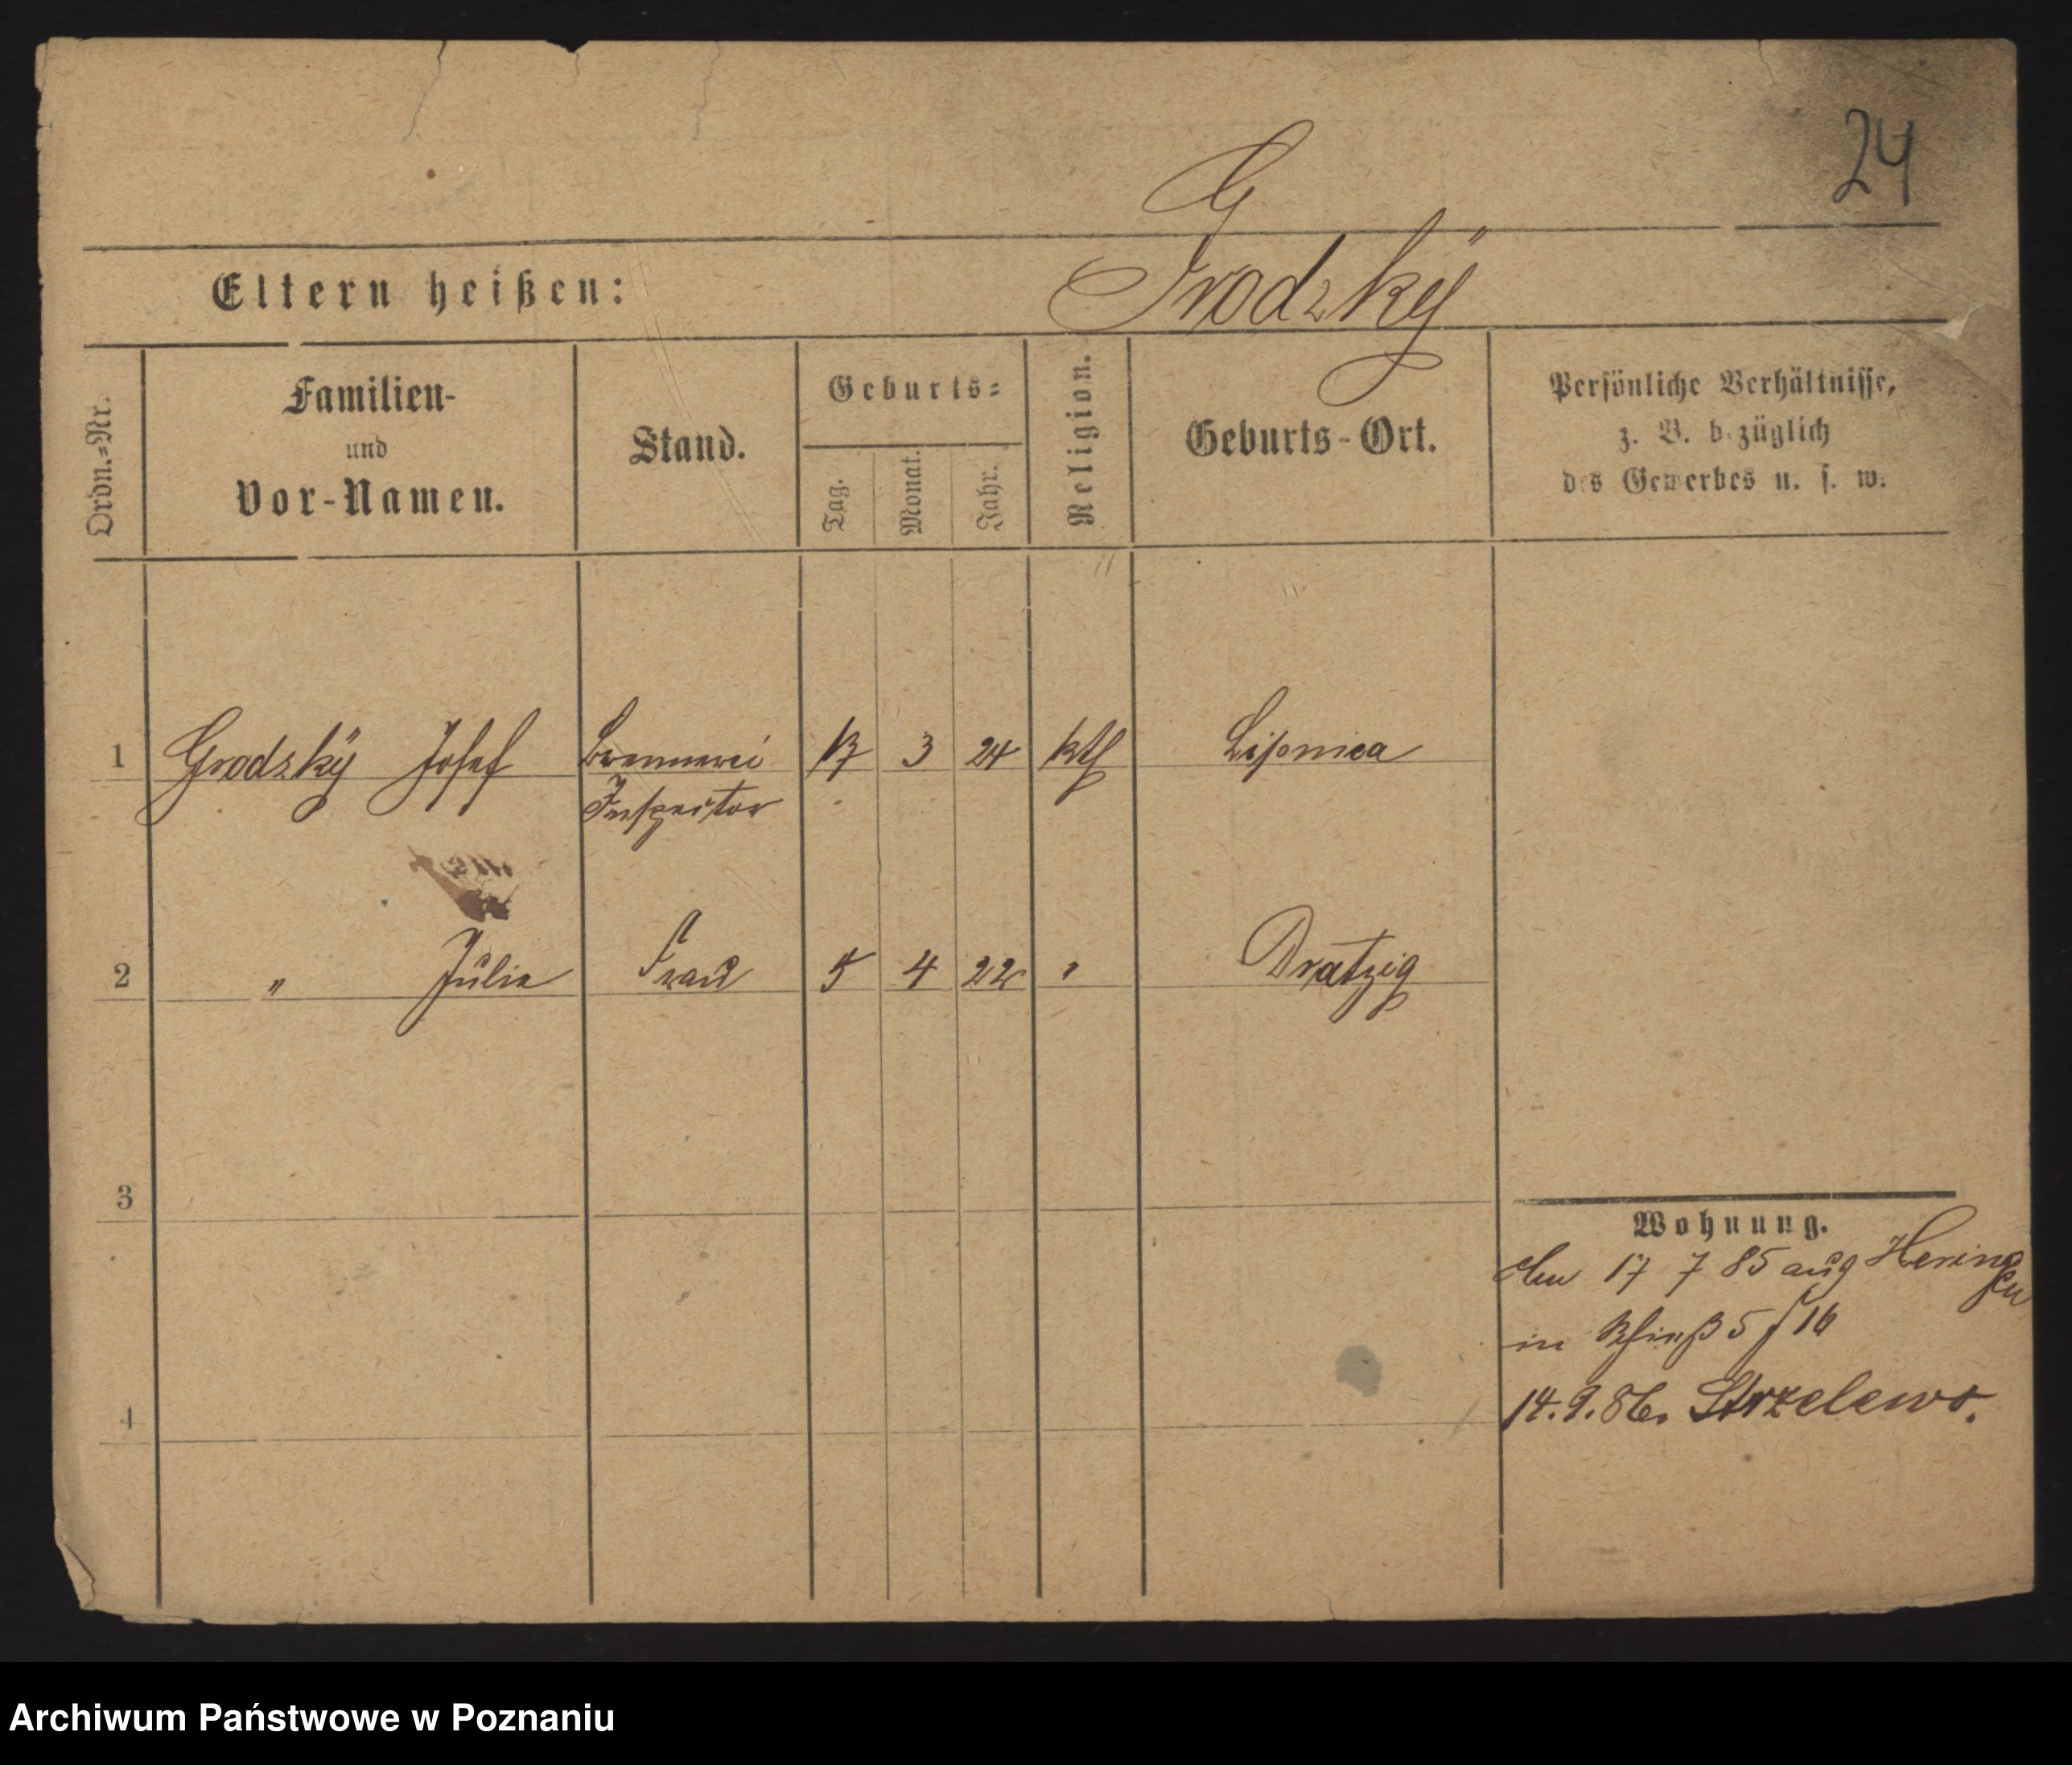 24
G
Grodzký
Eltern heißen:
Ordn.=Nr.
Familien-
und
Vor-Namen.
Stand.
Geburts=
Tag.
Monat.
Jahr.
Religion.
Geburts-Ort.
Persönliche Verhältnisse,
z. B. bezüglich
des Gewerbes u. s. w.
1 Grodzký Josef Brennerei 3 24 kth
Inspector
2 " Julie Frau 5 4 22 " Dratzig
3
Wohnung.
17 7 85 aus
in 5 / 16
14.9.86. Strzelewo.
4
Archiwum Państwowe w Poznaniu